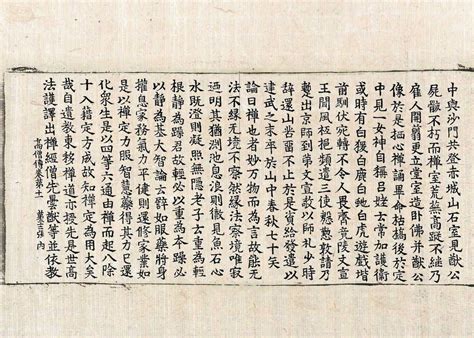 中興沙門共登赤城山石室見猷公
屍骸不朽而禪室荒蕪高蹤不繼乃
雇人開剪更立堂室造卧佛并猷公
像於是栖心禪誦畢命枯槁後於定
中見一女神自稱呂姥云常加護衛
或時有白猨白鹿白虵白虎遊戲階
前馴伏宛轉不令人畏齊竟陵文宣
王聞風祗挹頻遣三使慇懃敦請乃
蹔出京師到第文宣敬以師禮少時
辭還山苦留不止於是資給發遣以
建武之末卒於山中春秋七十矣
論曰禪也者妙万物而為言故能無
法不緣無境不察然緣法察境唯寂
迺明其猶淵池息浪則徹見魚石心
水既澄則凝照無隱老子云重為輕
根靜為躁君故輕必以重為本躁必
以靜為基大智論云譬如服藥將身
權息家務氣力平健則還修家業如
是以禪定力服智慧藥得其力已還
化衆生是以四等六通由禪而起八除
十入藉定方成故知禪定為用大矣
哉自遺教東移禪道亦授先是世高
法護譯出禪經僧先曇猷等並依教
高僧傳卷第十一 張 內